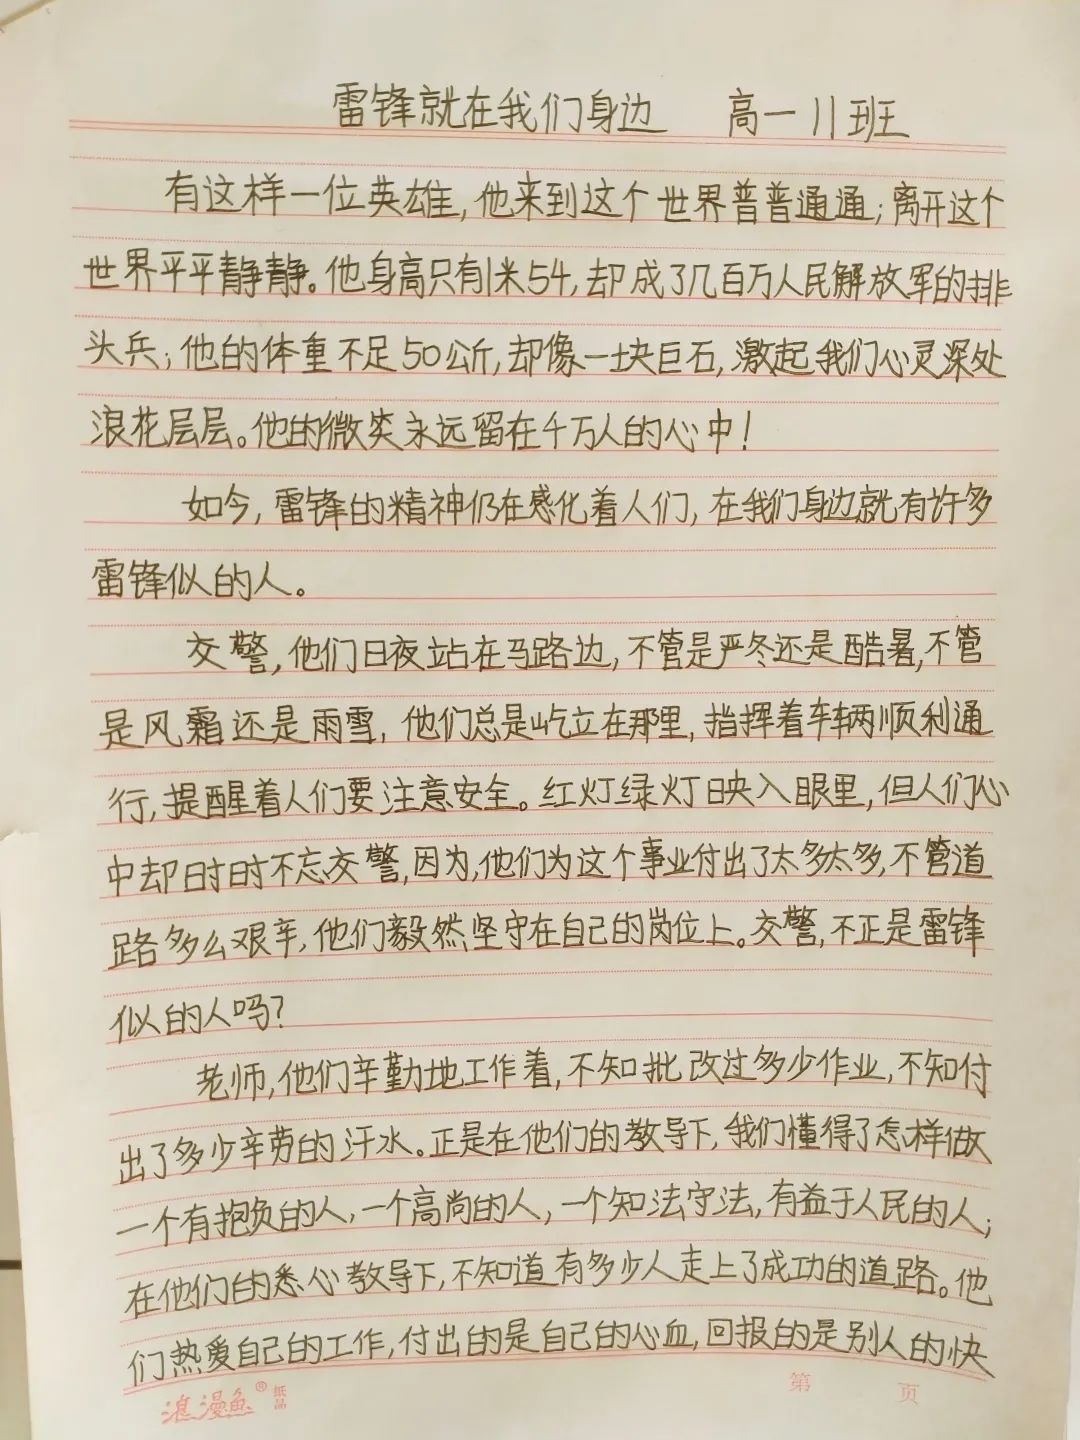 雷锋就在我们身边 高一11班
有这样一位英雄,他来到这个世界普普通通;离开这个
世界平平静静。他身高只有1米54,却成了几百万人民解放军的排
头兵;他的体重不足50公斤,却像一块巨石,激起我们心灵深处
浪花层层。他的微笑永远留在千万人的心中!
如今,雷锋的精神仍在感化着人们,在我们身边就有许多
雷锋似的人。
交警,他们日夜站在马路边,不管是严冬还是酷暑,不管
是风霜还是雨雪,他们总是屹立在那里,指挥着车辆顺利通
行,提醒着人们要注意安全。红灯绿灯映入眼里,但人们心
中却时时不忘交警,因为,他们为这个事业付出了太多太多,不管道
路多么艰辛,他们毅然坚守在自己的岗位上。交警,不正是雷锋
似的人吗?
老师,他们辛勤地工作着,不知批改过多少作业,不知付
出了多少辛劳的汗水。正是在他们的教导下,我们懂得了怎样做
一个有抱负的人,一个高尚的人,一个知法守法,有益于人民的人;
在他们的悉心教导下,不知道有多少人走上了成功的道路。他
们热爱自己的工作,付出的是自己的心血,回报的是别人的快
浪漫鱼® 纸品 第 页